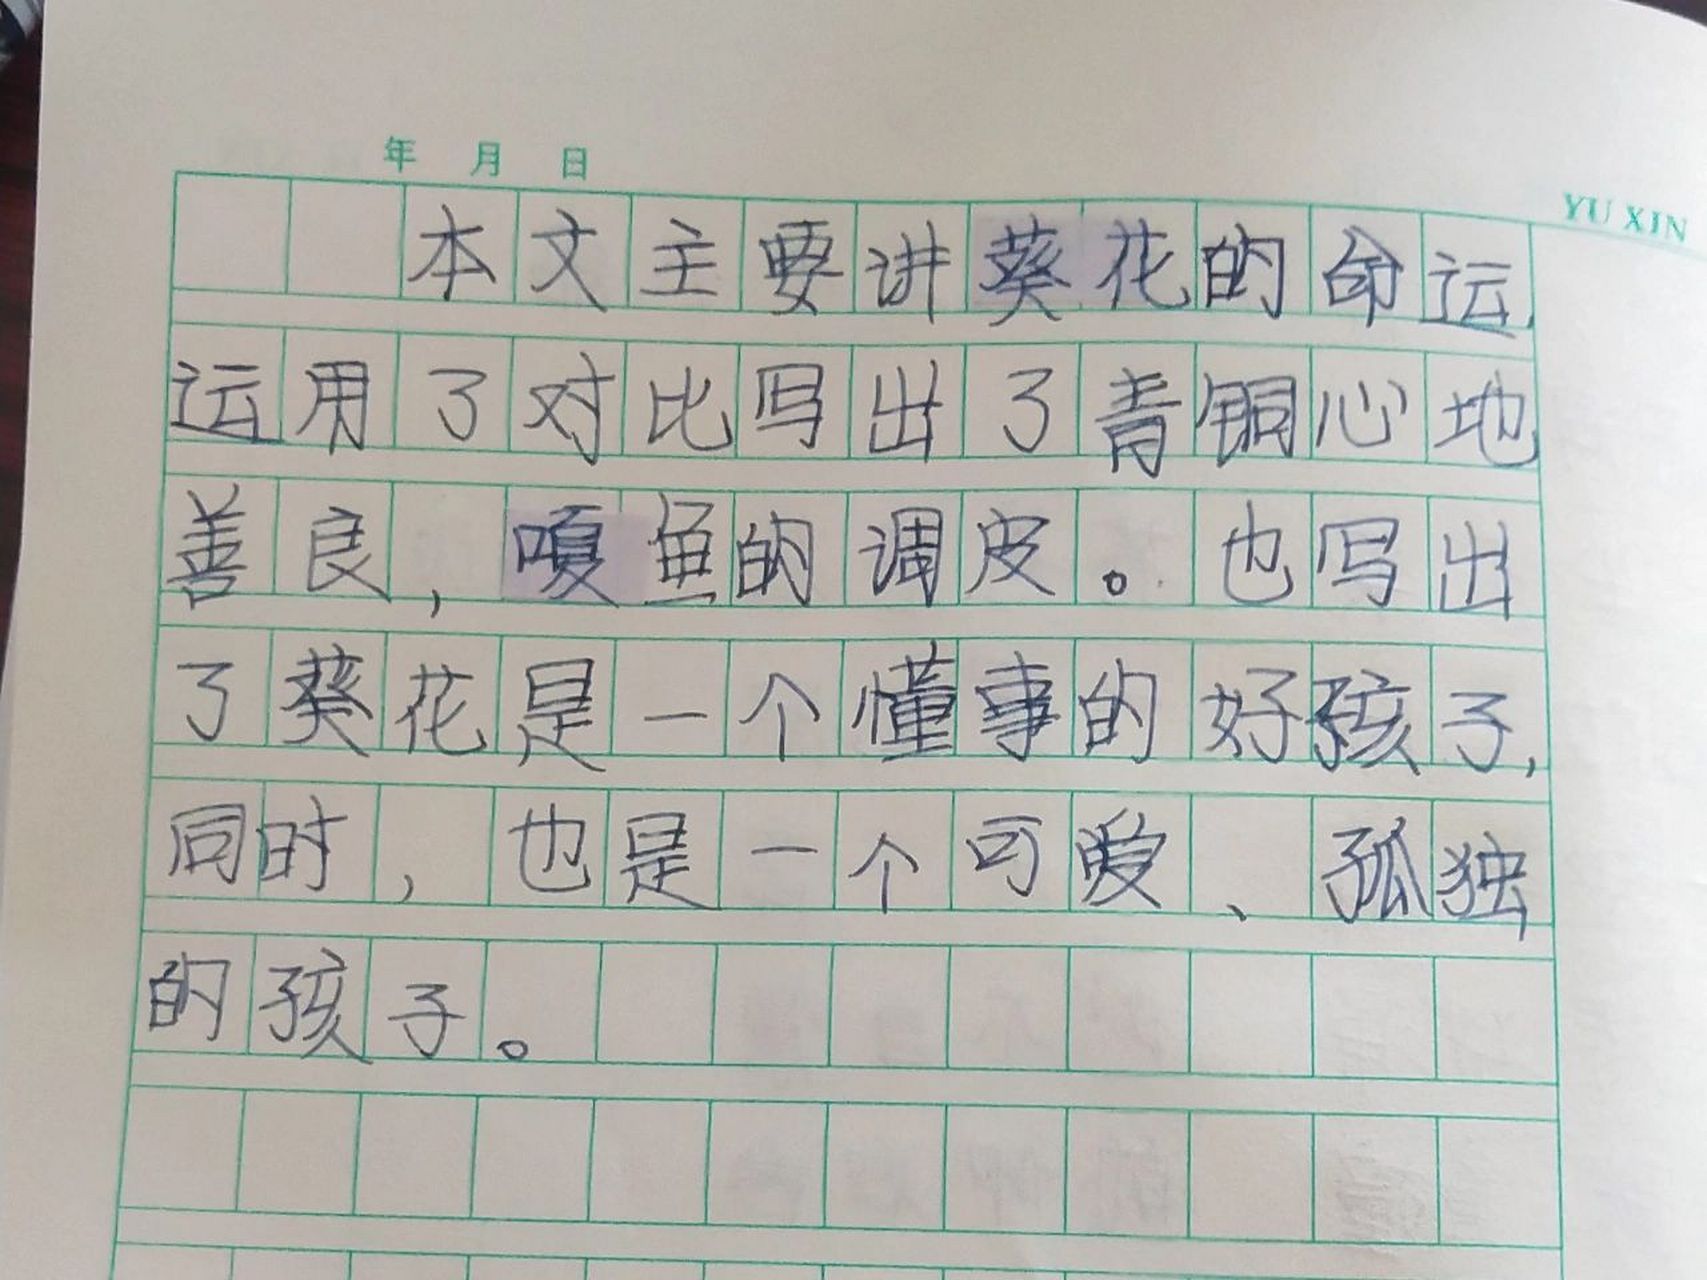 年 月 日
YU XIN
本文主要讲葵花的命运,
运用了对比写出了青铜心地
善良,嘎鱼的调皮。也写出
了葵花是一个懂事的好孩子,
同时,也是一个可爱、孤独
的孩子。